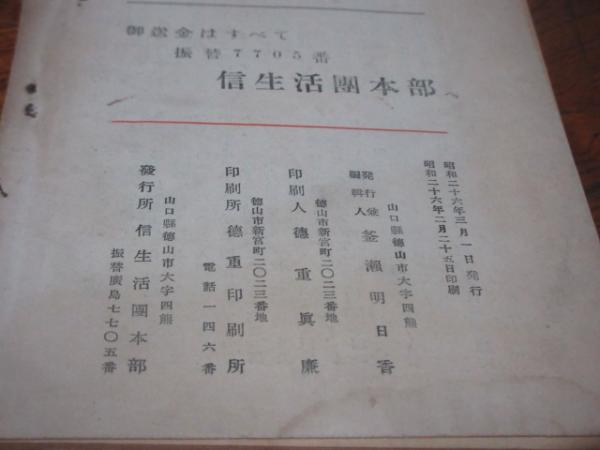 御送金はすべて
振替7705番
信生活團本部
昭和二十六年三月一日発行
昭和二十六年二月二十五日印刷
山口縣徳山市大字四熊
発行兼
編輯人 釜瀬明日香
徳山市新宮町二〇二三番地
印刷人 徳重眞廉
徳山市新宮町二〇二三番地
印刷所 徳重印刷所
電話一四六番
山口縣徳山市大字四熊
發行所 信生活團本部
振替廣島七七〇五番